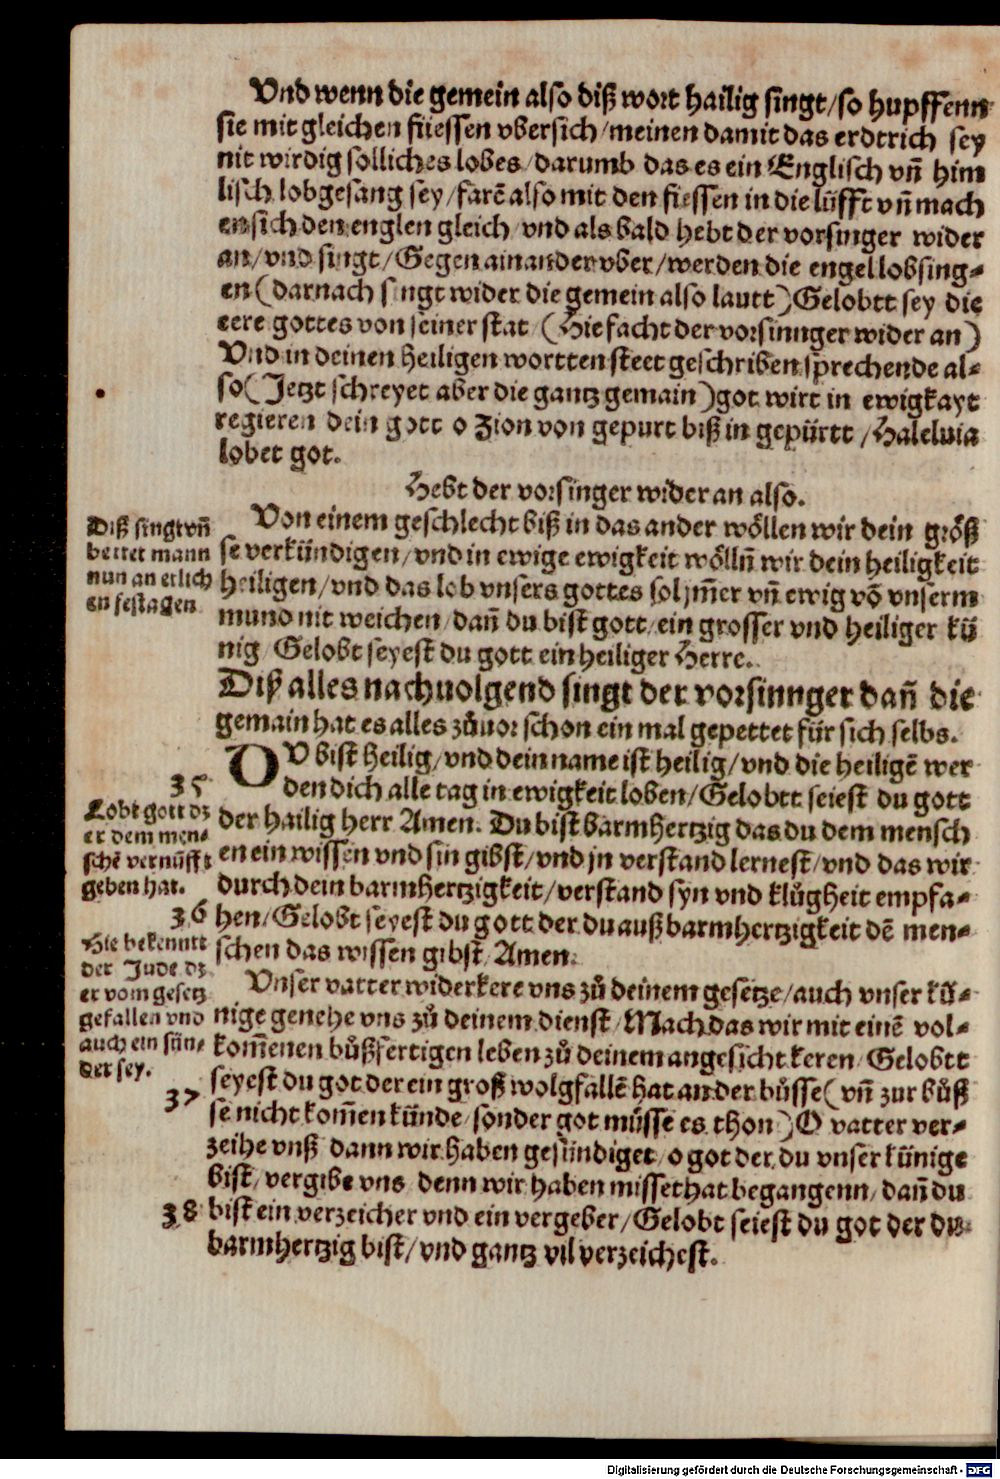 Vnd wenn die gemein also diß wort hailig singt/so hupffenn
sie mit gleichen fiessen vbersich/meinen damit das erdtrich sey
nit wirdig solliches lobes/darumb das es ein Englisch vñ him
lisch lobgesang sey/farē also mit den fiessen in die lüfft vñ mach
en sich den englen gleich/vnd als bald hebt der vorsinger wider
an/vnd singt/Gegen ainander vber/werden die engel lobsing-
en (darnach singt wider die gemein also lautt) Gelobtt sey die
eere gottes von seiner stat (Hie facht der vorsinnger wider an)
Vnd in deinen heiligen wortten steet geschriben sprechende al-
so (Jetzt schreyet aber die gantz gemain) got wirt in ewigkayt
regieren dein gott o Zion von gepurt biß in gepürtt/Haleluia
lobet got.
Hebt der vorsinger wider an also.
Diß singt vñ
bettet mann
nun an etlich
en festagen
Von einem geschlecht biß in das ander wöllen wir dein größ
se verkündigen/vnd in ewige ewigkeit wöllñ wir dein heiligkeit
heiligen/vnd das lob vnsers gottes sol jm̄er vñ ewig vō vnserm
mund nit weichen/dañ du bist gott/ein grosser vnd heiliger kü
nig/Gelobt seyest du gott ein heiliger Herre.
Diß alles nachuolgend singt der vorsinnger dañ die
gemain hat es alles zůuor schon ein mal gepettet für sich selbs.
35
Lobt gott dz
er dem men-
schē vernüfft
geben hat.
DV bist heilig/vnd dein name ist heilig/vnd die heiligē wer
den dich alle tag in ewigkeit loben/Gelobtt seiest du gott
der hailig herr Amen. Du bist barmhertzig das du dem mensch
en ein wissen vnd sin gibst/vnd jn verstand lernest/vnd das wir
durch dein barmhertzigkeit/verstand syn vnd klůgheit empfa-
hen/Gelobt seyest du gott der du auß barmhertzigkeit dē men-
schen das wissen gibst/Amen.
36
Hie bekenntt
der Jude dz
er vom gesetz
gefallen vnd
auch ein sün-
der sey.
Vnser vatter widerkere vns zů deinem gesetze/auch vnser kü-
nige genehe vns zů deinem dienst/Mach das wir mit einē vol-
kom̄enen bůßfertigen leben zů deinem angesicht keren/Gelobtt
seyest du got der ein groß wolgfallē hat an der bůsse (vñ zur bůß
se nicht kom̄en künde/sonder got müsse es thon) O vatter ver-
37
zeihe vnß dann wir haben gesündiget/o got der du vnser künige
bist/vergibe vns denn wir haben missethat begangenn/dañ du
38
bist ein verzeicher vnd ein vergeber/Gelobt seiest du got der du
barmhertzig bist/vnd gantz vil verzeichest.
Digitalisierung gefördert durch die Deutsche Forschungsgemeinschaft - DFG